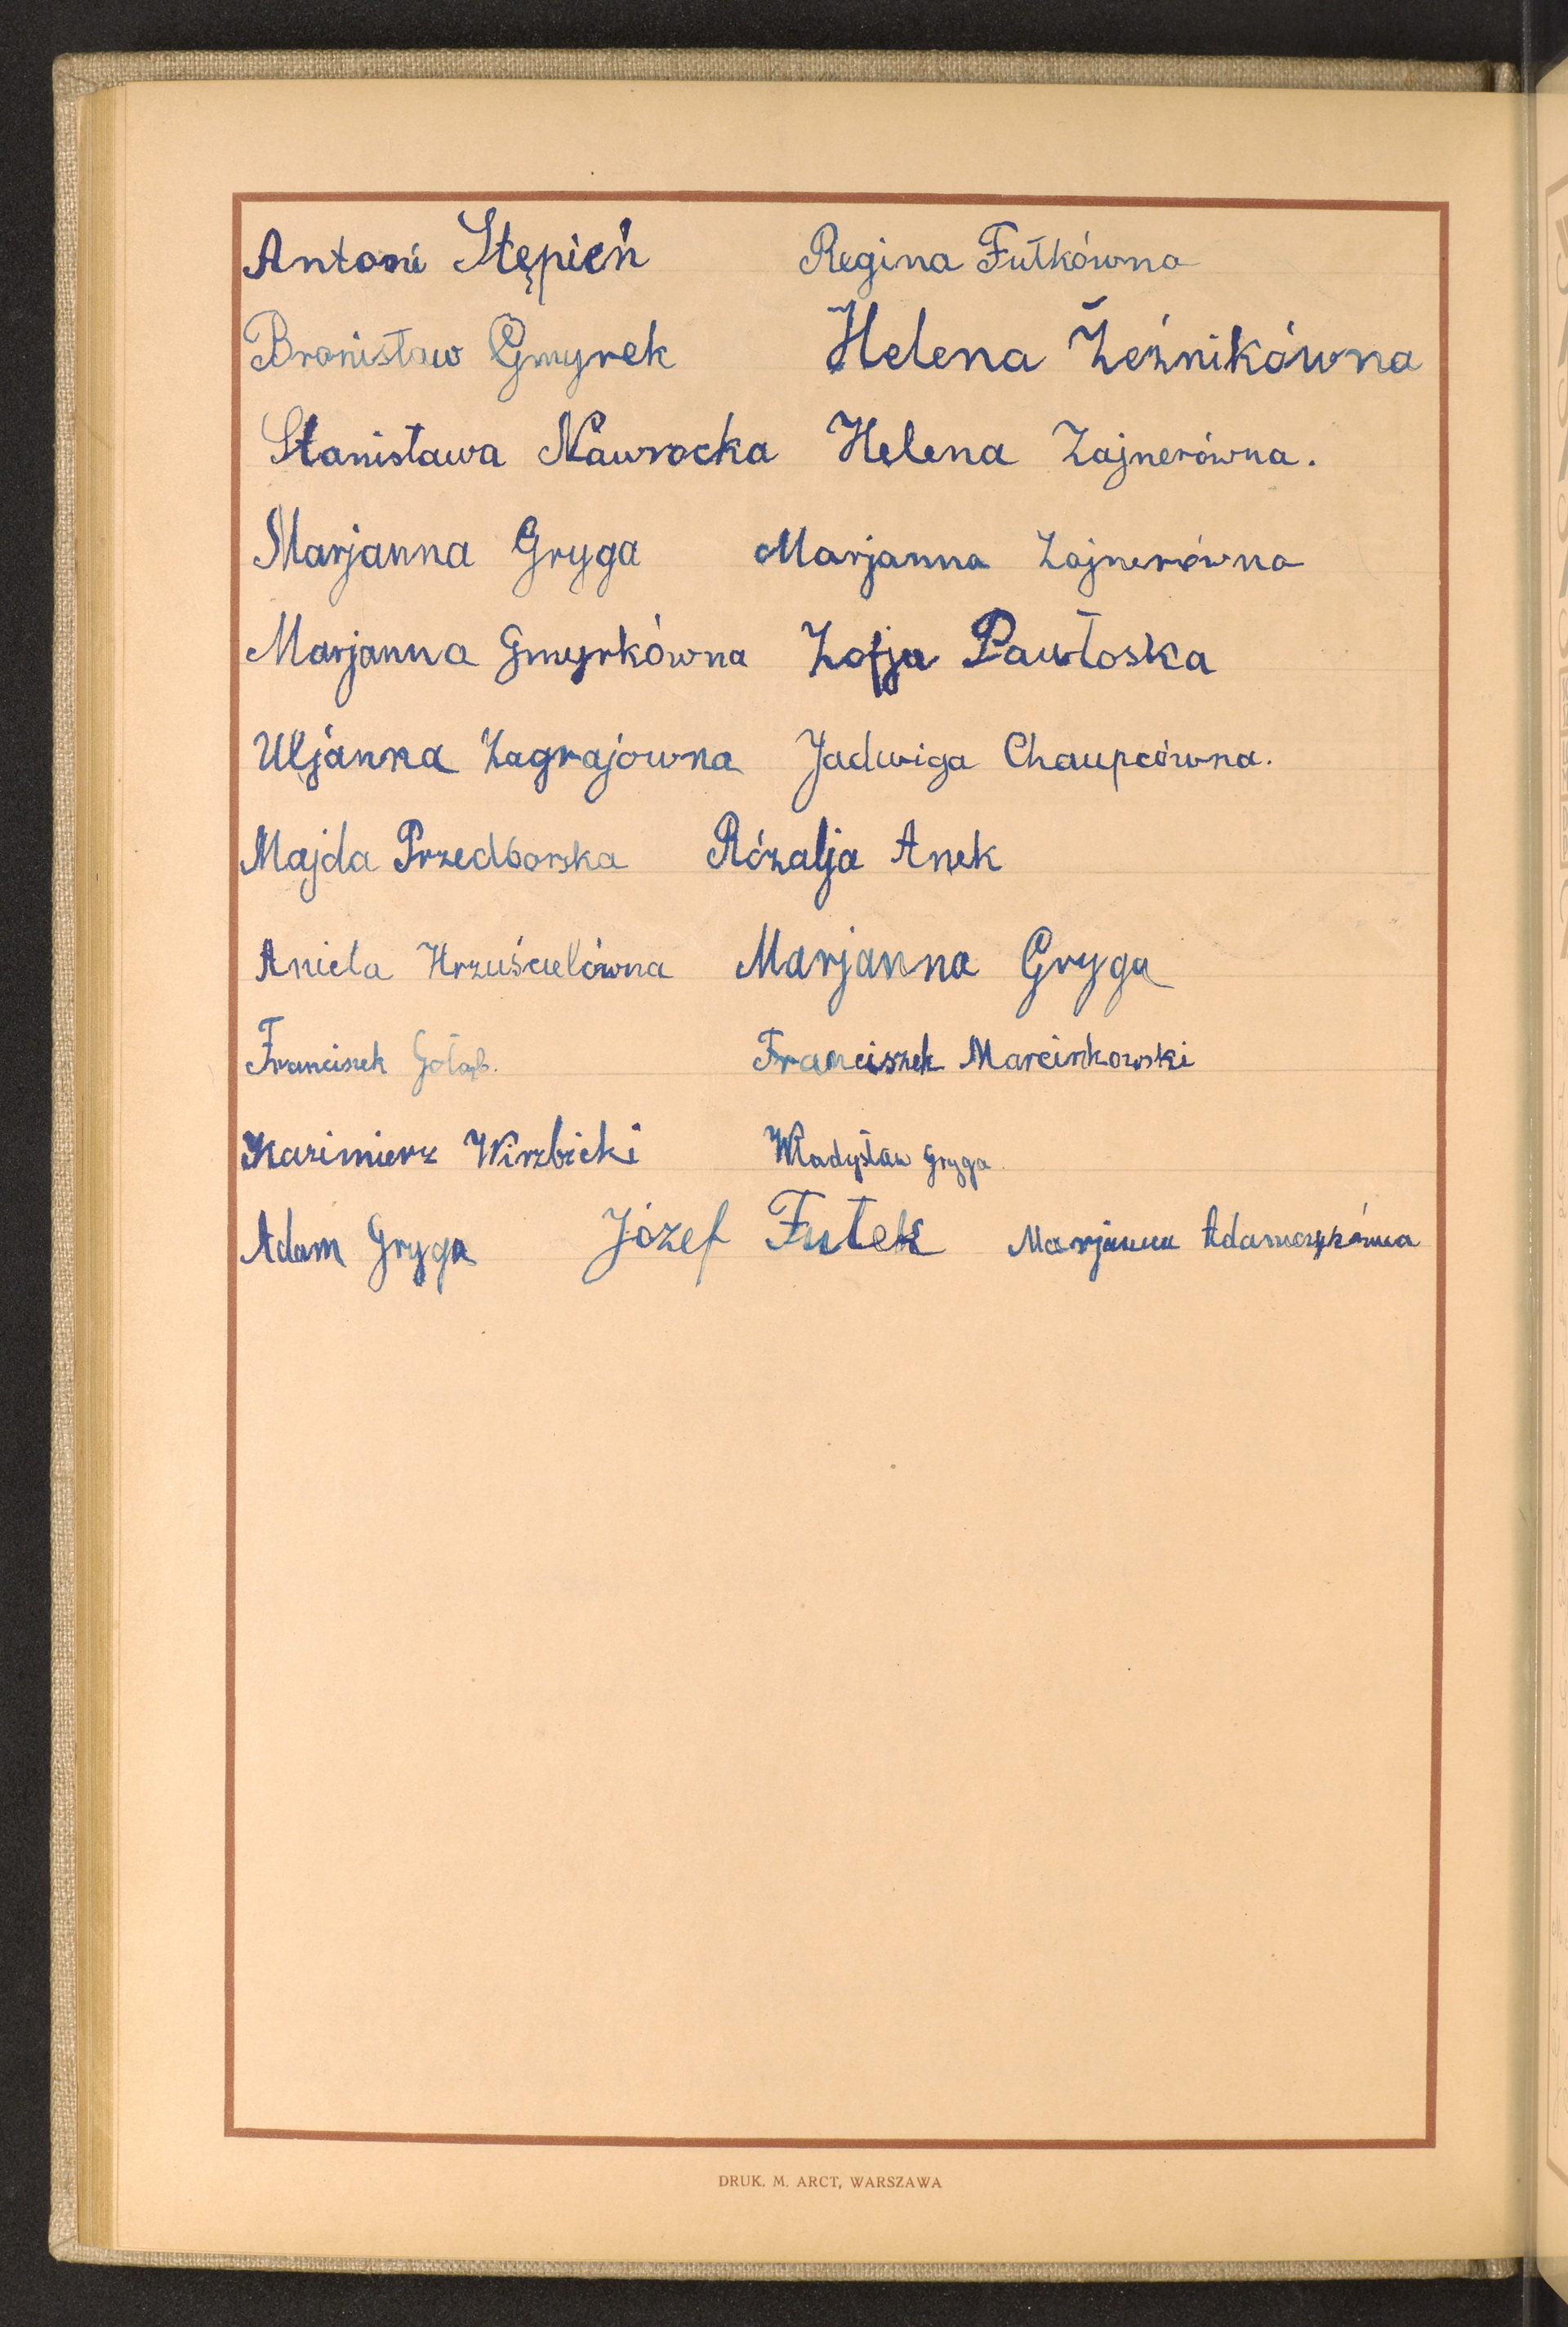 Antoni Stępień Regina Futkówna
Bronisław Gmyrek Helena Żeźnikówna
Stanisława Nawrocka Helena Zajnerówna.
Marjanna Gryga Marjanna Zajnerówna
Marjanna Gmyrkówna Zofja Pawłoska
Uljanna Zagrajowna Jadwiga Chaupcówna.
Majda Przedborska Rózalja Anek
Aniela Hrzuścielówna Marjanna Gryga
Franciszek Gołąb. Franciszek Marcinkowski
Kazimierz Wirzbicki Władysław Gryga
Adam Gryga Józef Futek Marjanna Adamczykówna
DRUK. M. ARCT, WARSZAWA